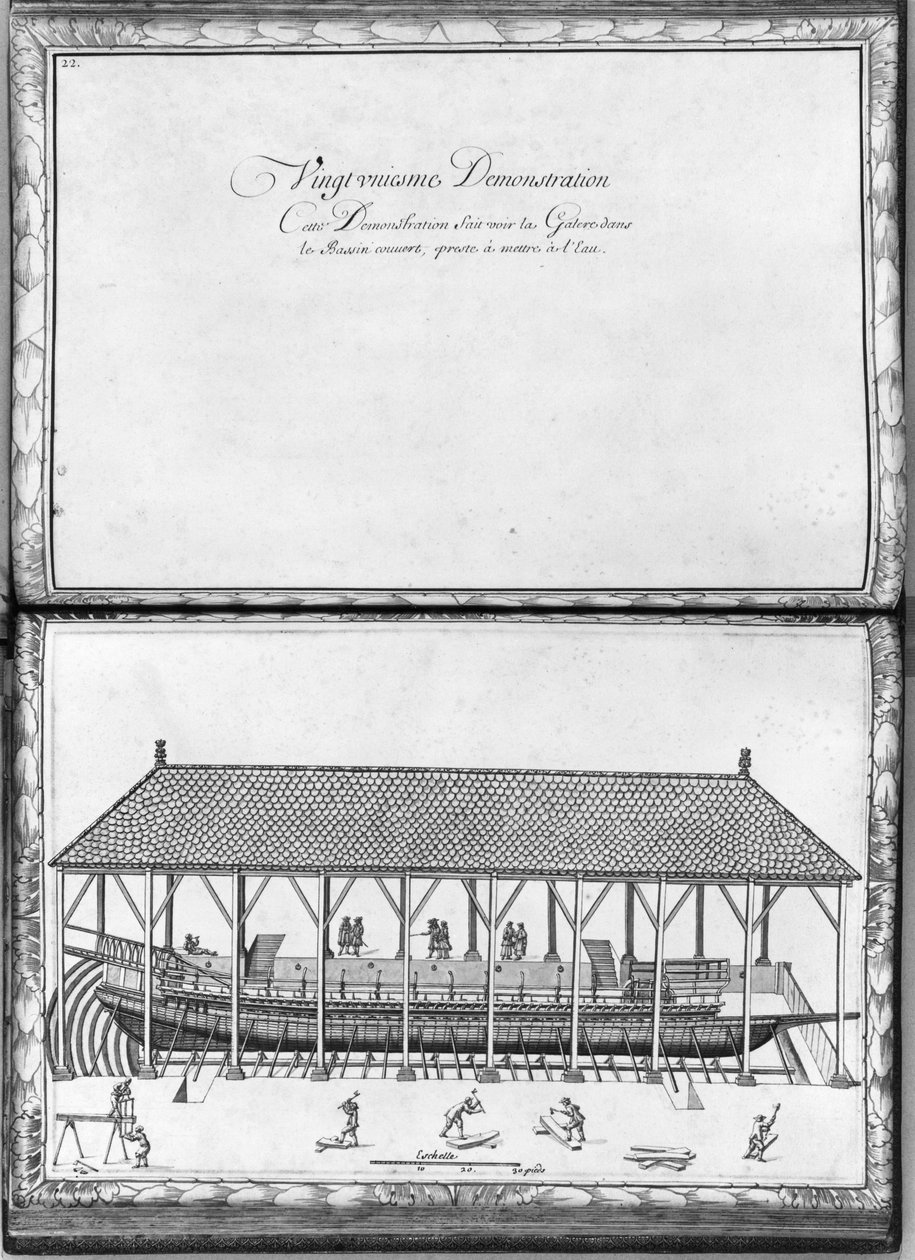 22.
Vingt vniesme Demonstration
Cette Demonstration fait voir la Galere dans
le Bassin couuert, preste à mettre à l'Eau.
Eschelle
10 20. 30 pieds